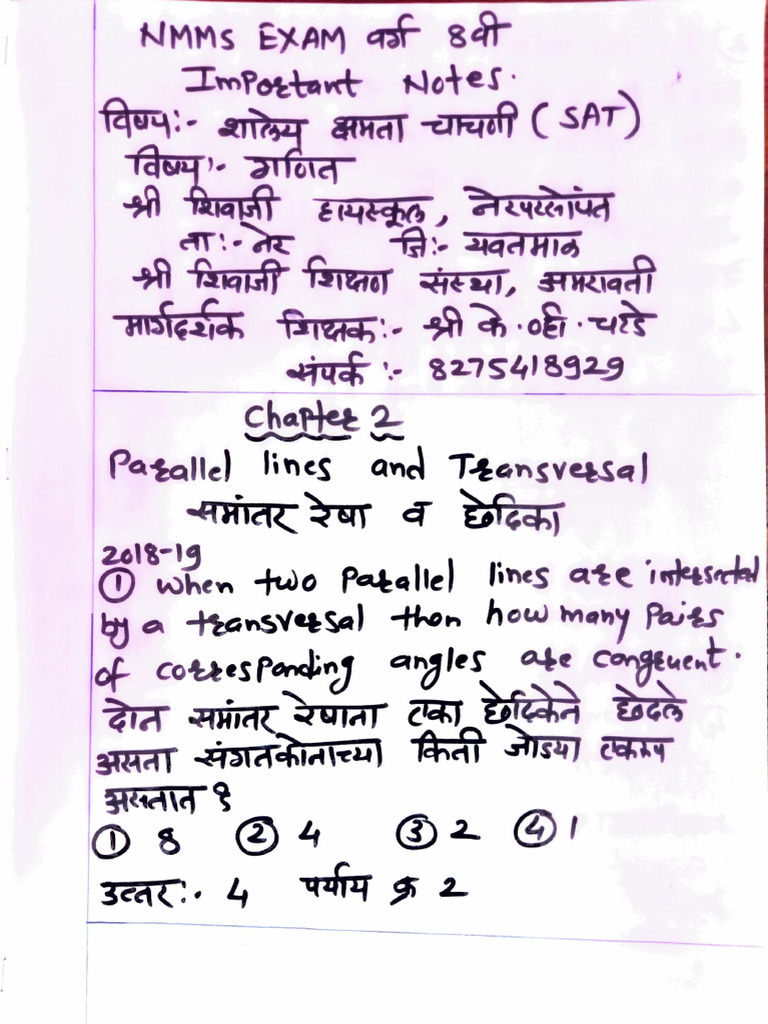 NMMS EXAM वर्ग 8वी
Important Notes.
विषय:- शालेय क्षमता चाचणी (SAT)
विषय:- गणित
श्री शिवाजी हायस्कूल, नेरपरसोपंत
ता:- नेर जि:- यवतमाळ
श्री शिवाजी शिक्षण संस्था, अमरावती
मार्गदर्शक शिक्षक:- श्री के. व्ही. चव्हाडे
संपर्क :- 8275418929
Chapter 2
Parallel lines and Transversal
समांतर रेषा व छेदिका
2018-19
① When two Parallel lines are intersected
by a transversal then how many Pairs
of corresponding angles are congruent.
दोन समांतर रेषांना एका छेदिकेने छेदले
असता संगतकोनाच्या किती जोड्या एकरूप
असतात ?
① 8 ② 4 ③ 2 ④ 1
उत्तर:- 4 पर्याय क्र 2